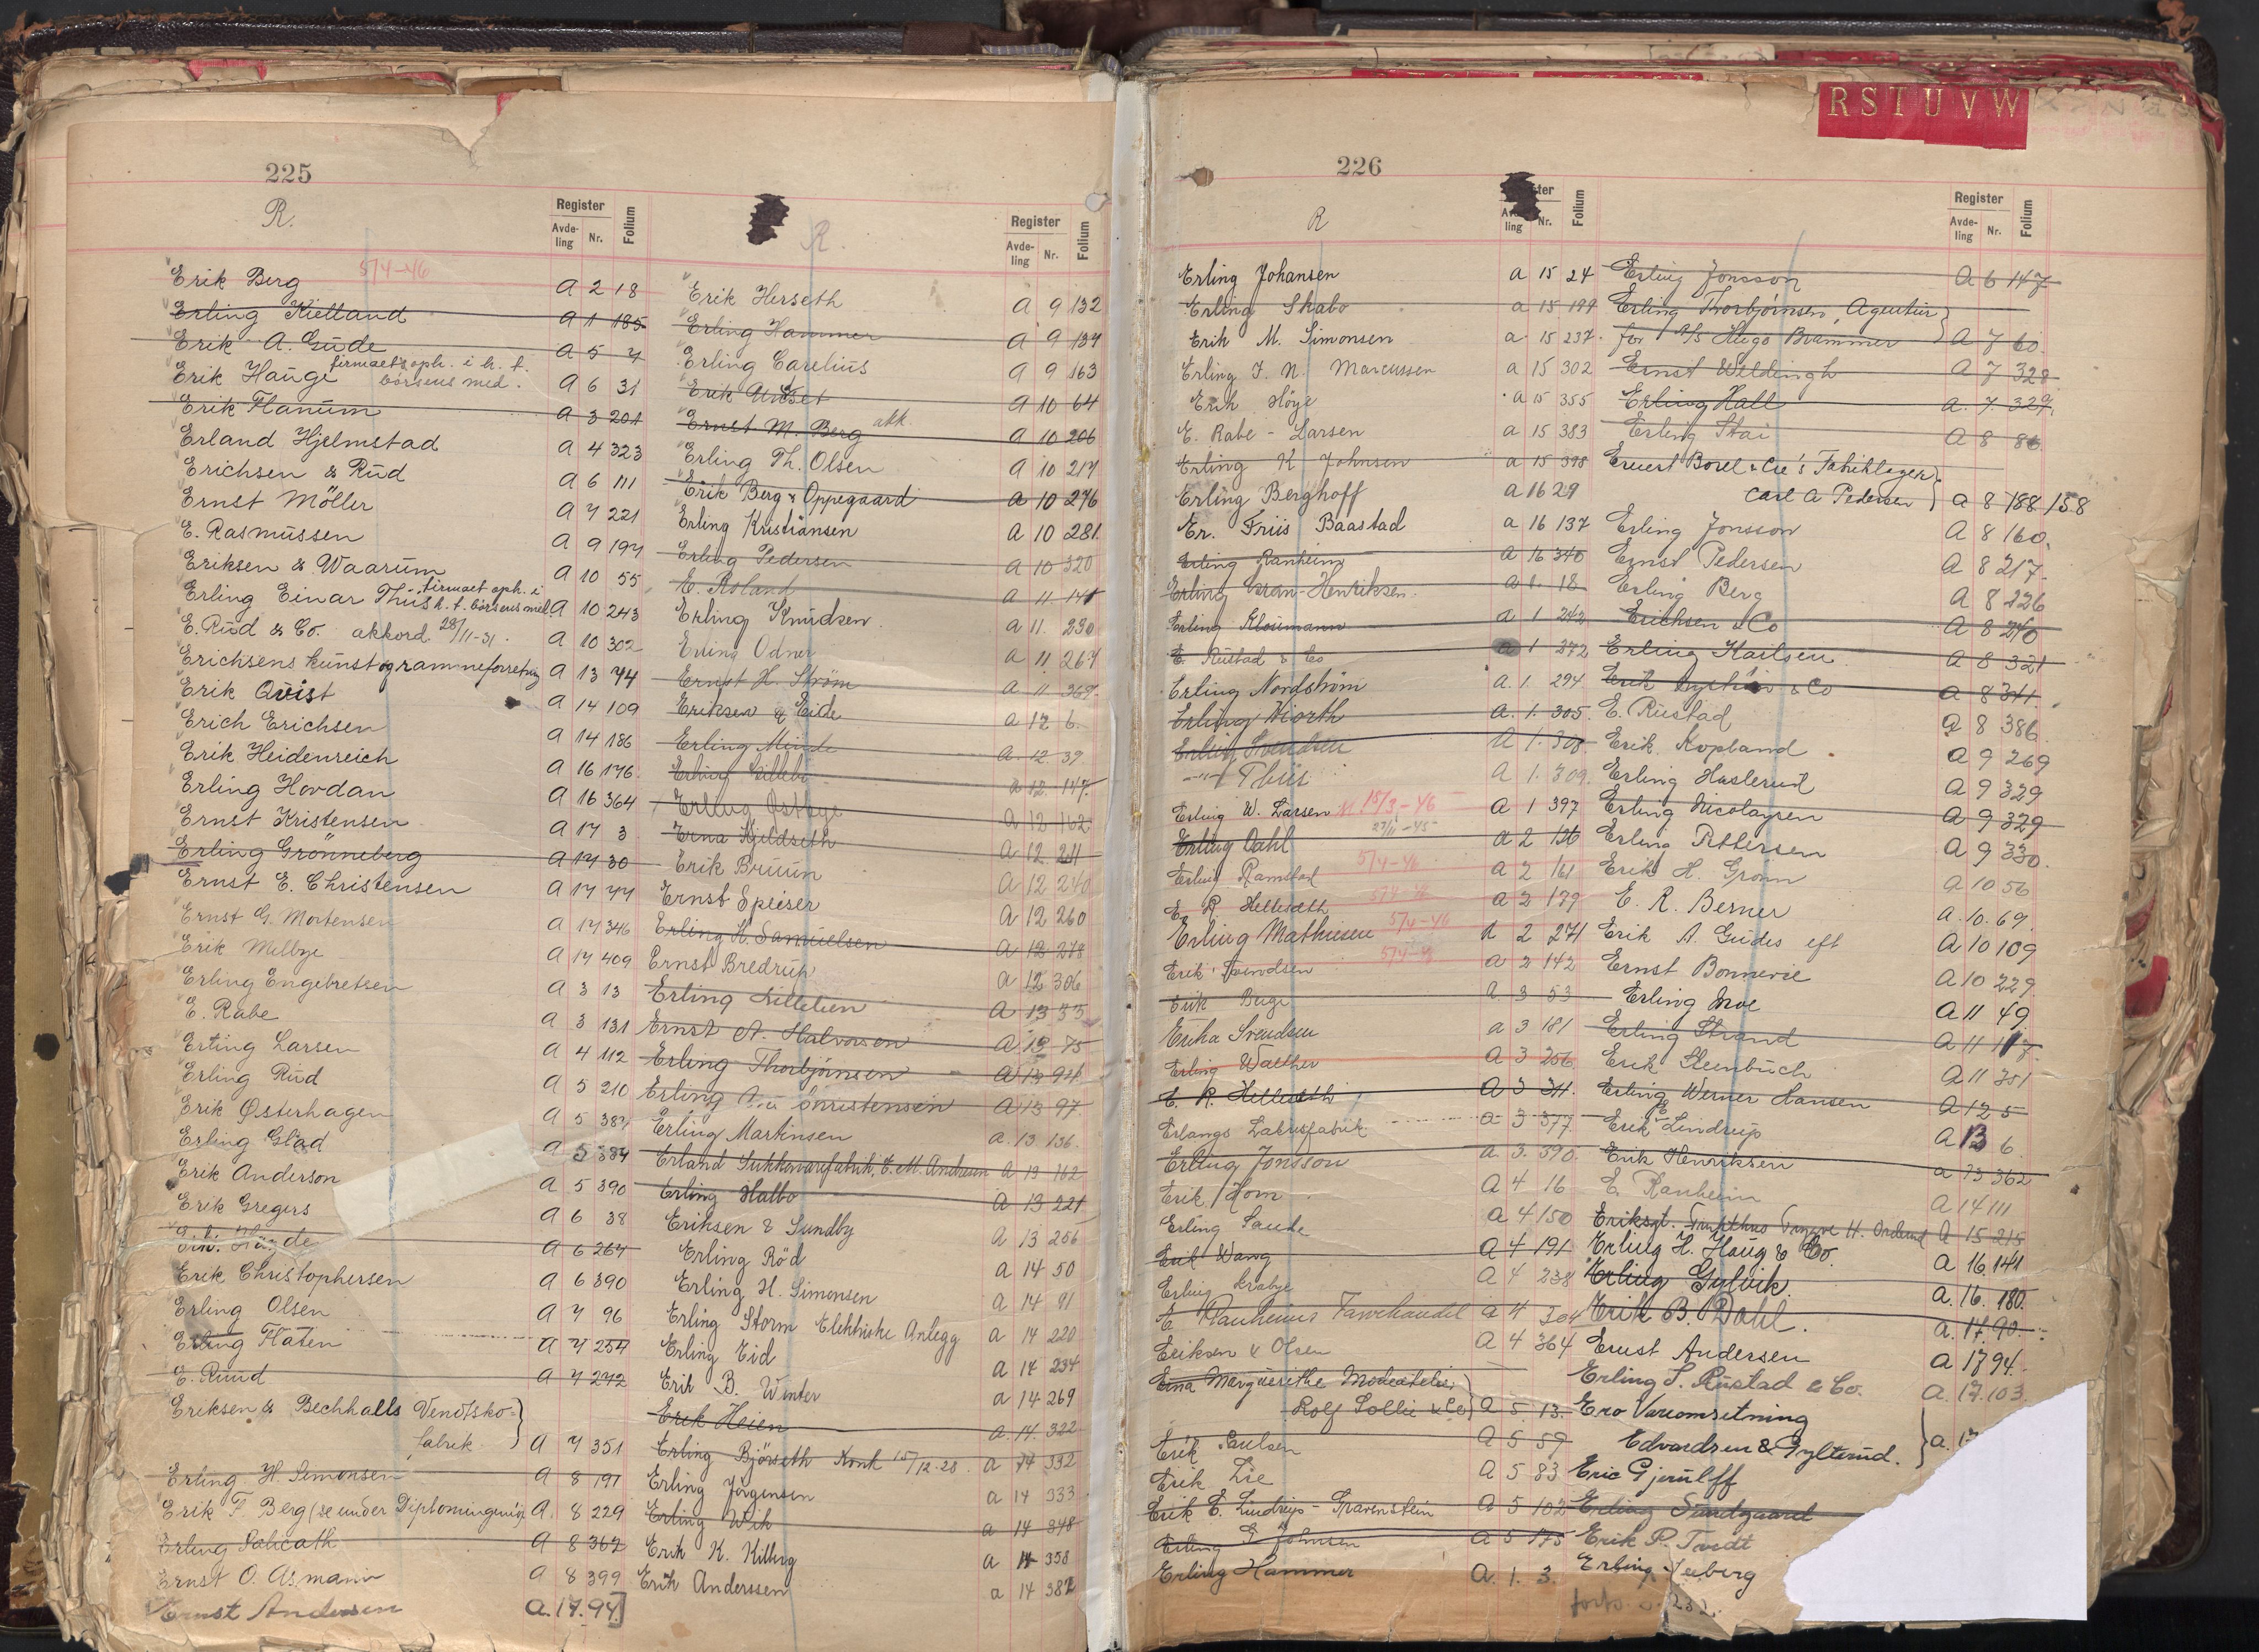 225
R.
Register
Avde-
ling
Nr.
Folium
Erik Berg 5/4-46 A 2 18
Erling Kielland A 1 185
Erik A. Gude A 5 4
firmaet oph. i h. t.
Erik Hauge børsens med. A 6 31
Erik Flanum A 3 201
Erland Hjelmstad A 4 323
Erichsen & Rud A 6 111
Ernst Möller A 7 221
E. Rasmussen A 9 197
Eriksen & Waarum A 10 55
firmaet oph. i
Erling Einar Thiis h. t. börsens med. A 10 243
E. Rud & Co. akkord 28/11-31. A 10 302
Erichsens kunst og rammeforretng A 13 74
Erik Qvist A 14 109
Erich Erichsen A 14 186
Erik Heidenreich A 16 176
Erling Hovdan A 16 364
Ernst Kristensen A 17 3
Erling Grönneberg A 17 30
Ernst E. Christensen A 17 77
Ernst G. Mortensen A 17 346
Erik Melbye A 17 409
Erling Engebretsen A 3 13
E. Rabe A 3 131
Erling Larsen A 4 112
Erling Rud A 5 210
Erik Østerhagen A 5 387
Erling Glad A 5 384
Erik Anderson A 5 390
Erik Gregers A 6 38
A 6 264
Erik Christophersen A 6 390
Erling Olsen A 7 96
Erling Flaten A 7 254
E. Ruud A 7 272
Eriksen & Bechhalls Vendtsko-
fabrik A 7 351
Erling H. Simonsen A 8 191
Erik F. Berg (se under Diplomingeniör) A. 8 229
Erling Solicath A 8 362
Ernst O. Asmann A 8 399
Ernst Andersen A. 17. 94.
R.
Register
Avde-
ling
Nr.
Folium
Erik Herseth A 9 132
Erling Hammer A 9 134
Erling Carelius A 9 163
Erik Unset A 10 64
Ernst M. Berg akk. A 10 206
Erling Th. Olsen A 10 217
Erik Berg & Oppegaard A 10 276
Erling Kristiansen A 10 281
Erling Pedersen A 10 320
E. Roland A 11. 141
Erling Knudsen A 11. 230
Erling Odner A 11 267
Ernst H. Ström A 11 367
Eriksen & Eide A 12 6.
Erling Minde A. 12 39
Erling Lillebo A 12. 147.
Erling Østbye A 12 162
Erna Kjeldseth A 12 211
Erik Bruun A 12 240
Ernst Speiser A 12 260
Erling H. Samuelsen A 12 278
Ernst Bredrup A 12 306
Erling Lilleløien A 13 33
Ernst A. Halvorsen A 13 75
Erling Thorbjörnsen A 13 94
Erling Christensen A 13 97.
Erling Martinsen A. 13 136.
Erland Sukkervarefabrik, E. M. Andresen A 13 162
Erling Halbo A 13 221
Eriksen & Sundby A 13 256
Erling Röd A 14 50
Erling H. Simonsen A 14 91
Erling Storm Elektriske Anlegg A 14 220
Erling Eid A 14 234
Erik B. Winter A 14 269
Erik Heien A. 14. 322
Erling Björseth Konk 15/12-28. A 14 332
Erling Jörgensen A 14 333
Erling Wik A 14 348
Erik K. Killing A 14 358
Erik Anderssen A 14 382
226
R
ter
ling
Nr.
Folium
Erling Johansen A 15 24
Erling Skabo A 15 199
Erik M. Simonsen A 15 237.
Erling I. N. Marcussen A 15 302
Erik Höye A 15 355
E. Rabe - Larsen A 15 383
Erling K Johnsen A 15 398
Erling Berghoff A 16 29
Er. Friis Baastad A 16 137
Erling Ranheim A 16 340
Erling Gran-Henriksen A 1. 18
Erling Kloumann A 1 242
E. Rustad & Co A 1 272
Erling Nordström A. 1. 294.
Erling Hiorth A. 1. 305.
Erling Svendsen A 1. 308
-"- Thiis A 1. 309.
Erling W. Larsen 18/3-46 A 1 397
Erling Dahl 27/11-45 A 2 136
Erling Ramstad 5/4-46 A 2 161
E. R. Helleseth 5/4-46 A 2 179
Erling Mathiesen 5/4-46 A 2 271
Erik Svendsen 5/4-46 A 2 142
Erik Berge A. 3 53
Erika Svendsen A 3 181
Erling Walther A 3 256
E. R. Helleseth A 3 311.
Erlangs Lakrisfabrik A 3 377.
Erling Jonsson A. 3. 390.
Erik Horn A 4 16
Erling Saude A 4 150
Erik Wang A 4 191
Erling Krabye A 4 238
E Ranheims Farvehandel A 4 304
Eriksen & Olsen A 4 364
Erna Margverithe Modeatelier,
Rolf Sollie & Co A. 5. 13.
Erik Paulsen A 5 59
Erik Lie A 5 83
Erik E. Lindrup - Gravenstein A 5 102
Erling E Johnsen A 5 175
Erling Hammer A. 1. 3.
RSTUVW
Register
Avde-
ling
Nr.
Folium
Erling Jonsson A 6 147
Erling Thorbjörnsen, Agentur
for A/S Hugo Brammer A 7 60.
Ernst Weldingh A 7 328.
Erling Hall A. 7. 329.
Erling Stai A 8 86
Ervert Borel & Cie's Fabriklager,
Carl A Pedersen A 8 188 158
Erling Jonsson A 8 160.
Ernst Pedersen A 8 217.
Erling Berg A 8 226
Erichsen & Co A 8 240
Erling Karlsen A 8 321
Erik & Co A 8 341.
E. Rustad A 8 386.
Erik Kopland A 9 269
Erling Haslerud A 9 329
Erling Nicolaysen A 9 329
Erling Pettersen A 9 330.
Erik H. Gronn A 10 56
E. R. Berner A. 10. 69.
Erik A. Gudes eft A 10 109
Ernst Bonnevie A 10 229
Erling Moe A 11 49
Erling Strand A 11 117.
Erik Steenbuch A 11 351
Erling Werner Hansen A 12 5
Erik Lindrup A 13 6
Erik Henriksen A 13 362
E. Ranheim A 14 111
Eriksgt. Frukthus Trygve H. Orderud A 15 215
Erling H. Haug & Co. A 16. 141
Erling Gylvik. A. 16. 180.
Erik B. Dahl. A. 17. 90.
Ernst Andersen A 17 94.
Erling S. Rustad & Co. A. 17. 103.
Ero Vareomsetning
Edvardsen & Gylterud. A. 17
Eric Gjerulff
Erling Sandgaard
Erik P. Tvedt
Erling Seeberg
forts. s. 232.